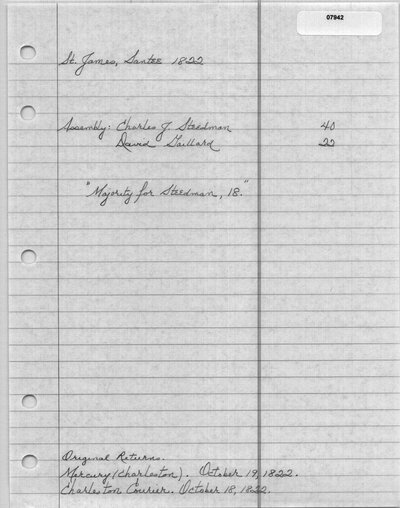 07942
St. James, Santee 1822
Assembly: Charles J. Steedman 40
David Gaillard 22
"Majority for Steedman, 18."
Original Returns.
Mercury (Charleston). October 19, 1822.
Charleston Courier. October 18, 1822.